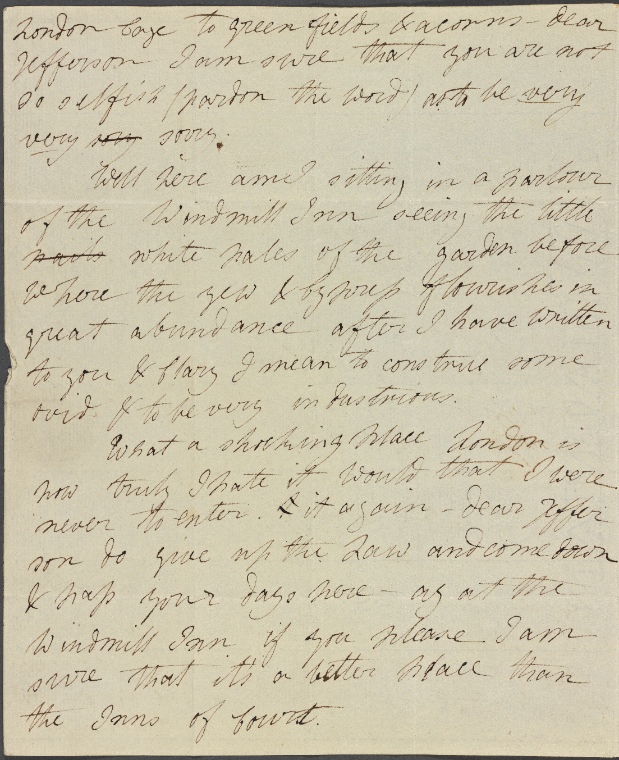 London Cage to green fields & acorns – dear
Jefferson I am sure that you are not
so selfish (pardon the word) as to be very
very sorry sorry.
Well here am I sitting in a parlour
of the Windmill Inn seeing the little
pails white pales of the garden before
where the yew & cypress flourishes in
great abundance after I have written
to you & Clary I mean to construe some
ovid & to be very industrious.
What a shocking place London is
now truly I hate it would that I were
never to enter. it again – dear Jeffer
son do give up the Law and come down
& pass your days here – ay at the
Windmill Inn if you please I am
sure that it's a better place than
the Inns of Court.